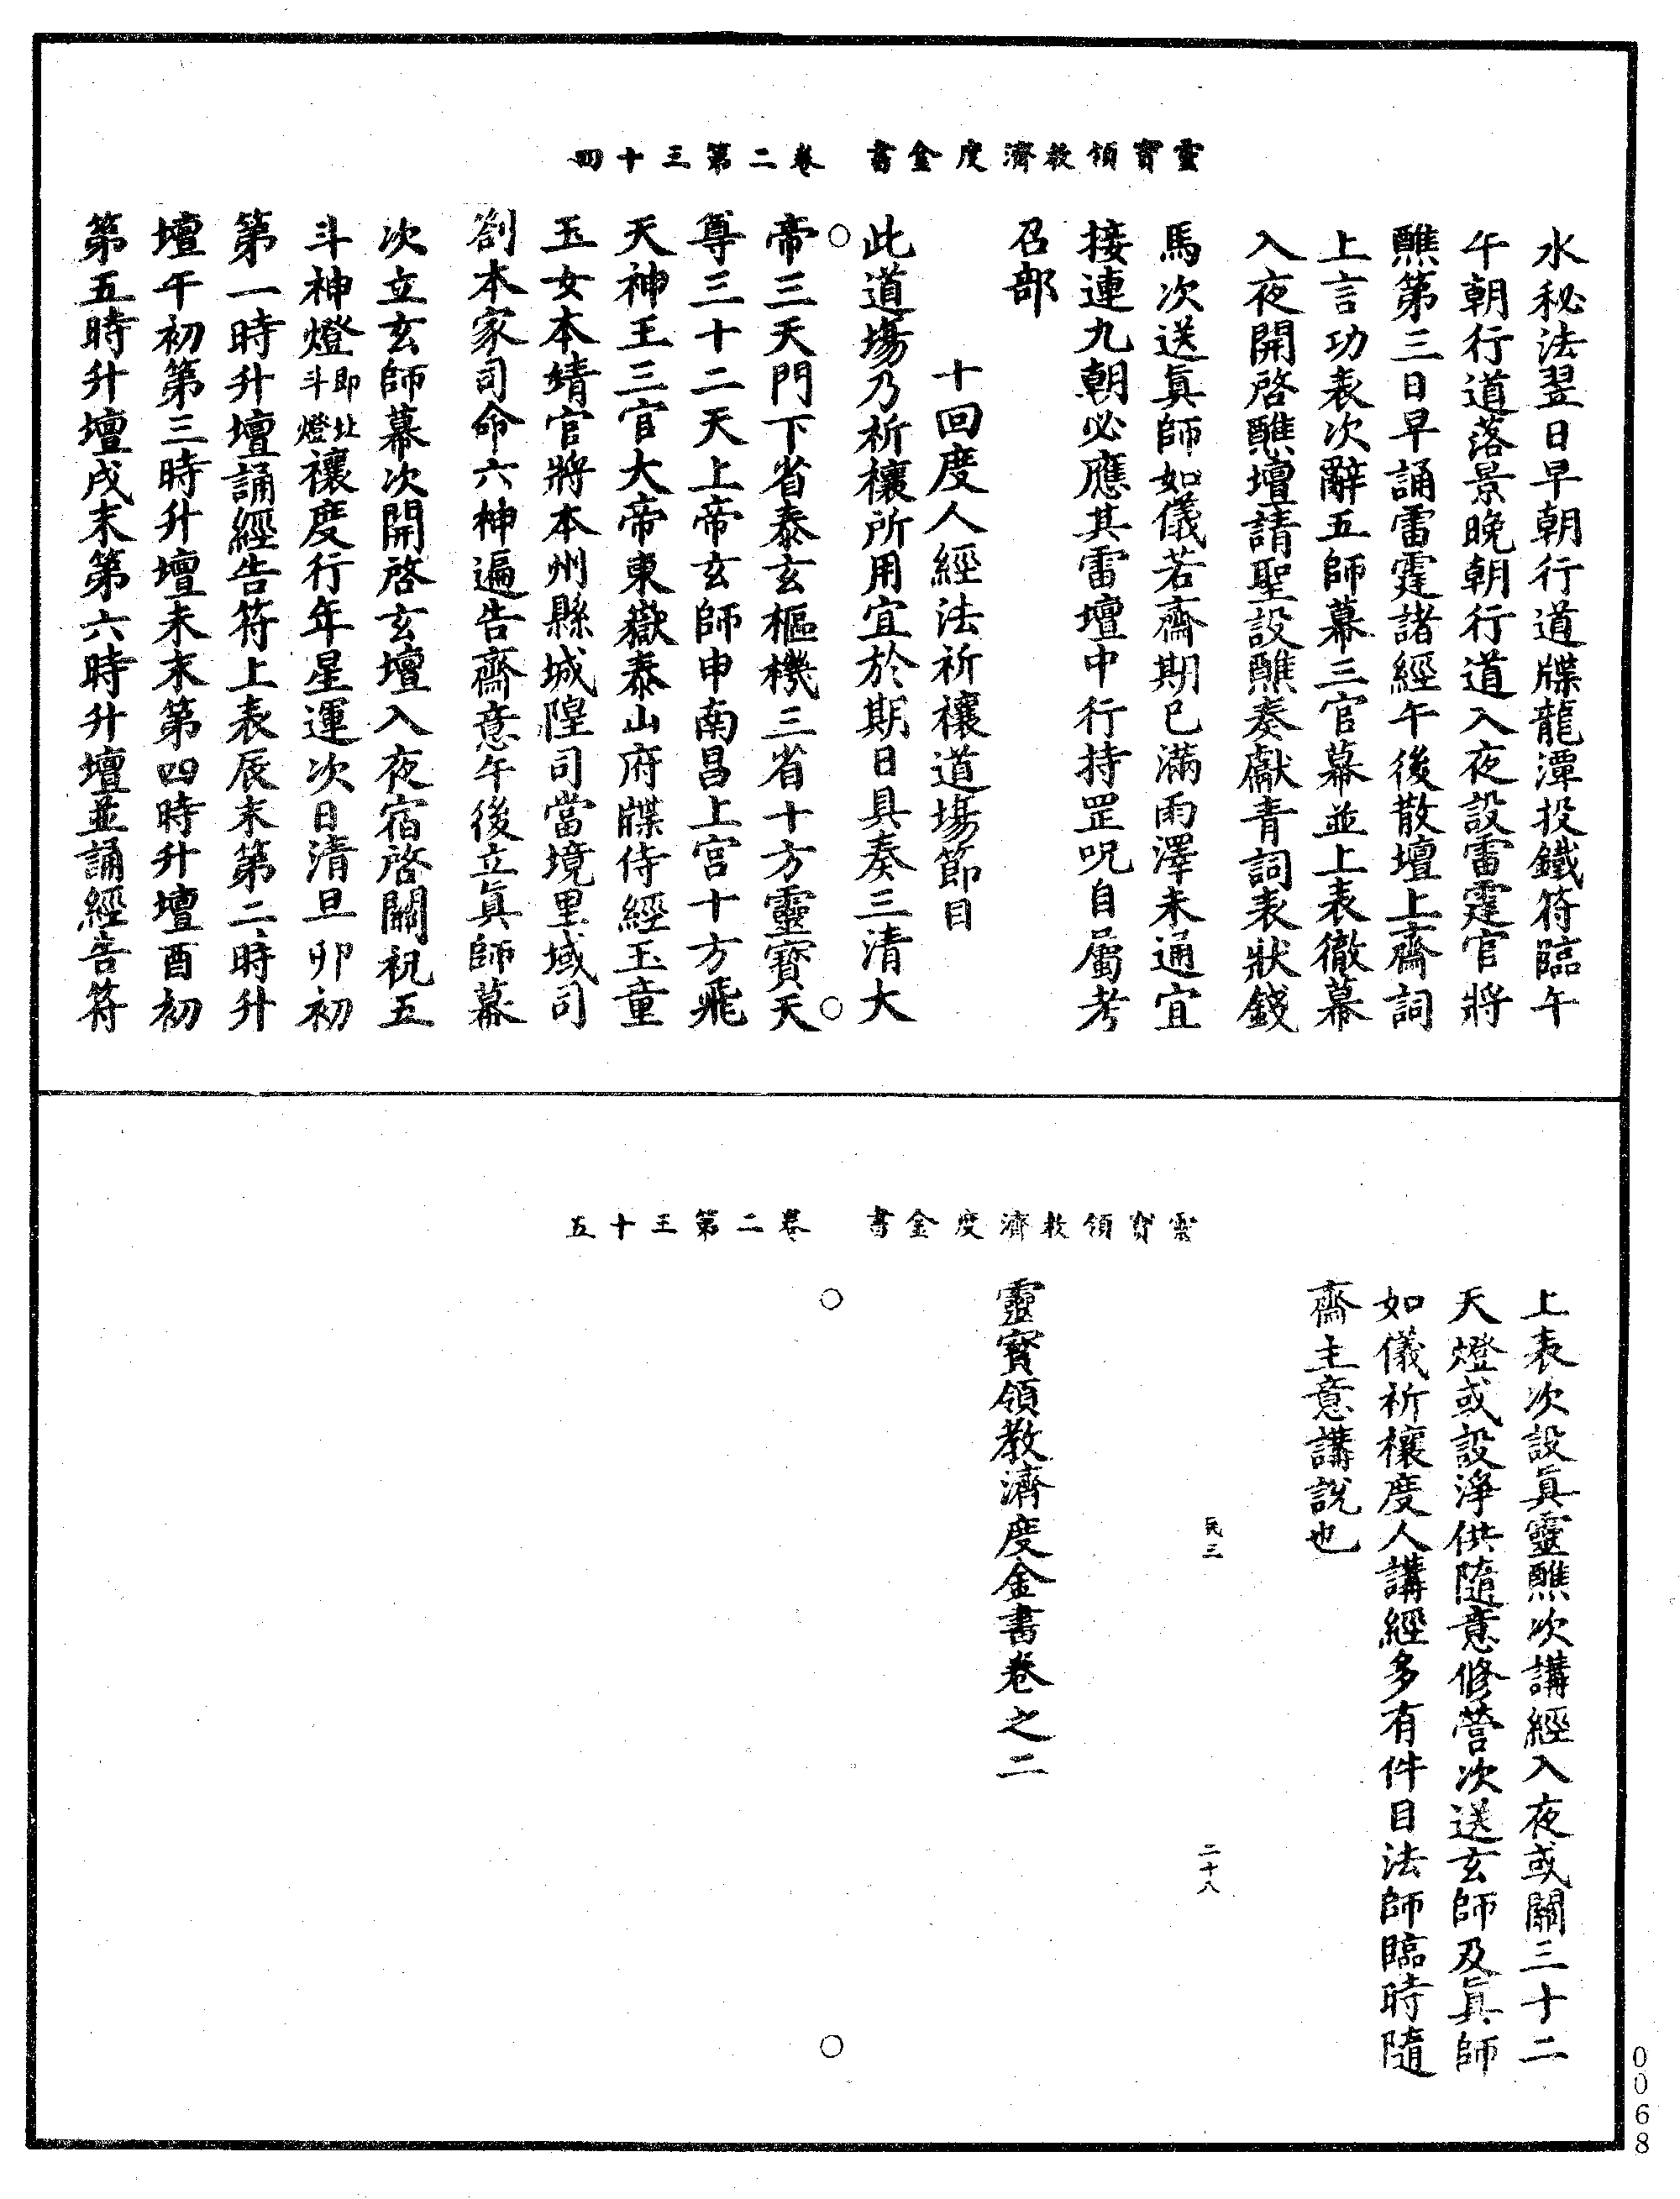 靈寶領教濟度金書　卷二第三十四
水秘法翌日早朝行道牒龍潭投鐵符臨午
午朝行道落景晚朝行道入夜設雷霆官將
醮第三日早誦雷霆諸經午後散壇上齋詞
上言功表次辭五師幕三官幕並上表徹幕
入夜開啓醮壇請聖設醮奏獻青詞表狀錢
馬次送眞師如儀若齋期已滿雨澤未通宜
接連九朝必應其雷壇中行持罡呪自屬考
召部
十回度人經法祈禳道場節目
此道塲乃祈禳所用宜於期日具奏三清大
帝三天門下省泰玄樞機三省十方靈寶天
尊三十二天上帝玄師申南昌上宮十方飛
天神王三官大帝東嶽泰山府牒侍經玉童
玉女本靖官將本州縣城隍司當境里域司
劄本家司命六神遍告齋意午後立眞師幕
次立玄師幕次開啓玄壇入夜宿啓關祝五
斗神燈即北斗燈禳度行年星運次日清旦卯初
第一時升壇誦經告符上表辰末第二時升
壇午初第三時升壇未末第四時升壇酉初
第五時升壇戌末第六時升壇並誦經告符
靈寶領教濟度金書　卷二第三十五
上表次設眞靈醮次講經入夜或關三十二
天燈或設淨供隨意修營次送玄師及眞師
如儀祈禳度人講經多有件目法師臨時隨
齋主意講說也
民三
二十八
靈寶領教濟度金書卷之二
0068